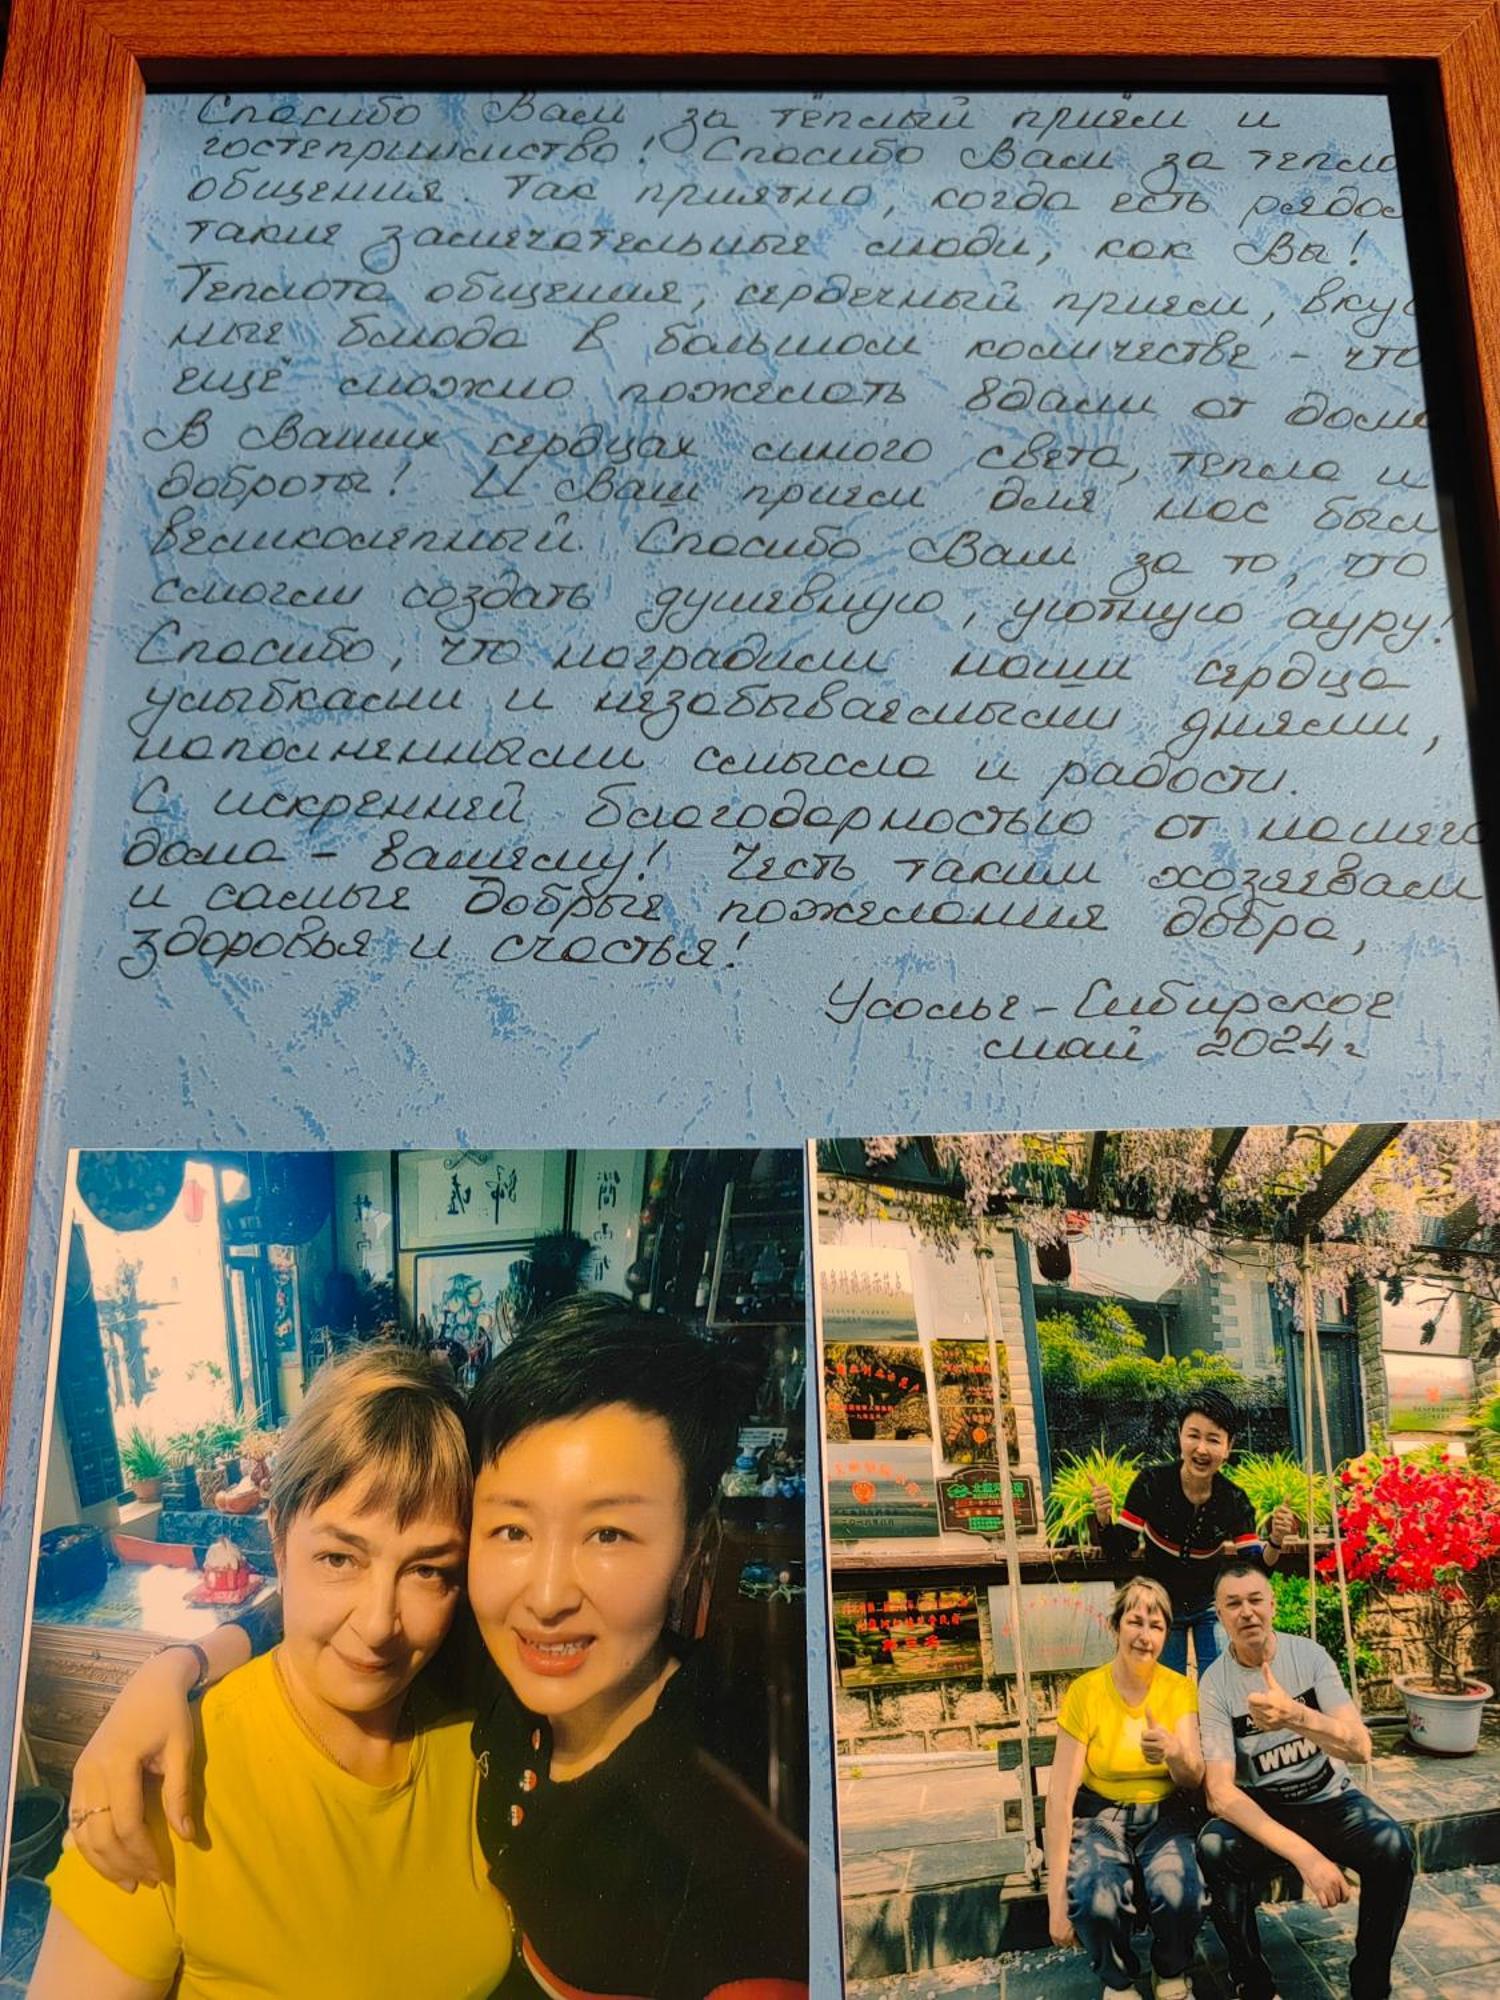 Спасибо Вам за тёплый приём и
гостеприимство! Спасибо Вам за тепло
общения. Так приятно, когда есть рядом
такие замечательные люди, как Вы!
Теплота общения, сердечный прием, вкус
ные блюда в большом количестве - что
ещё можно пожелать вдали от дома
В Ваших сердцах много света, тепла и
доброты! И Ваш прием для нас был
великолепный. Спасибо Вам за то, что
смогли создать душевную, уютную ауру!
Спасибо, что наградили наши сердца
улыбками и незабываемыми днями,
наполненными смысла и радости.
С искренней благодарностью от нашего
дома - вашему! Честь таким хозяевам
и самые добрые пожелания добра,
здоровья и счастья!
Усолье-Сибирское
май 2024г
WWW